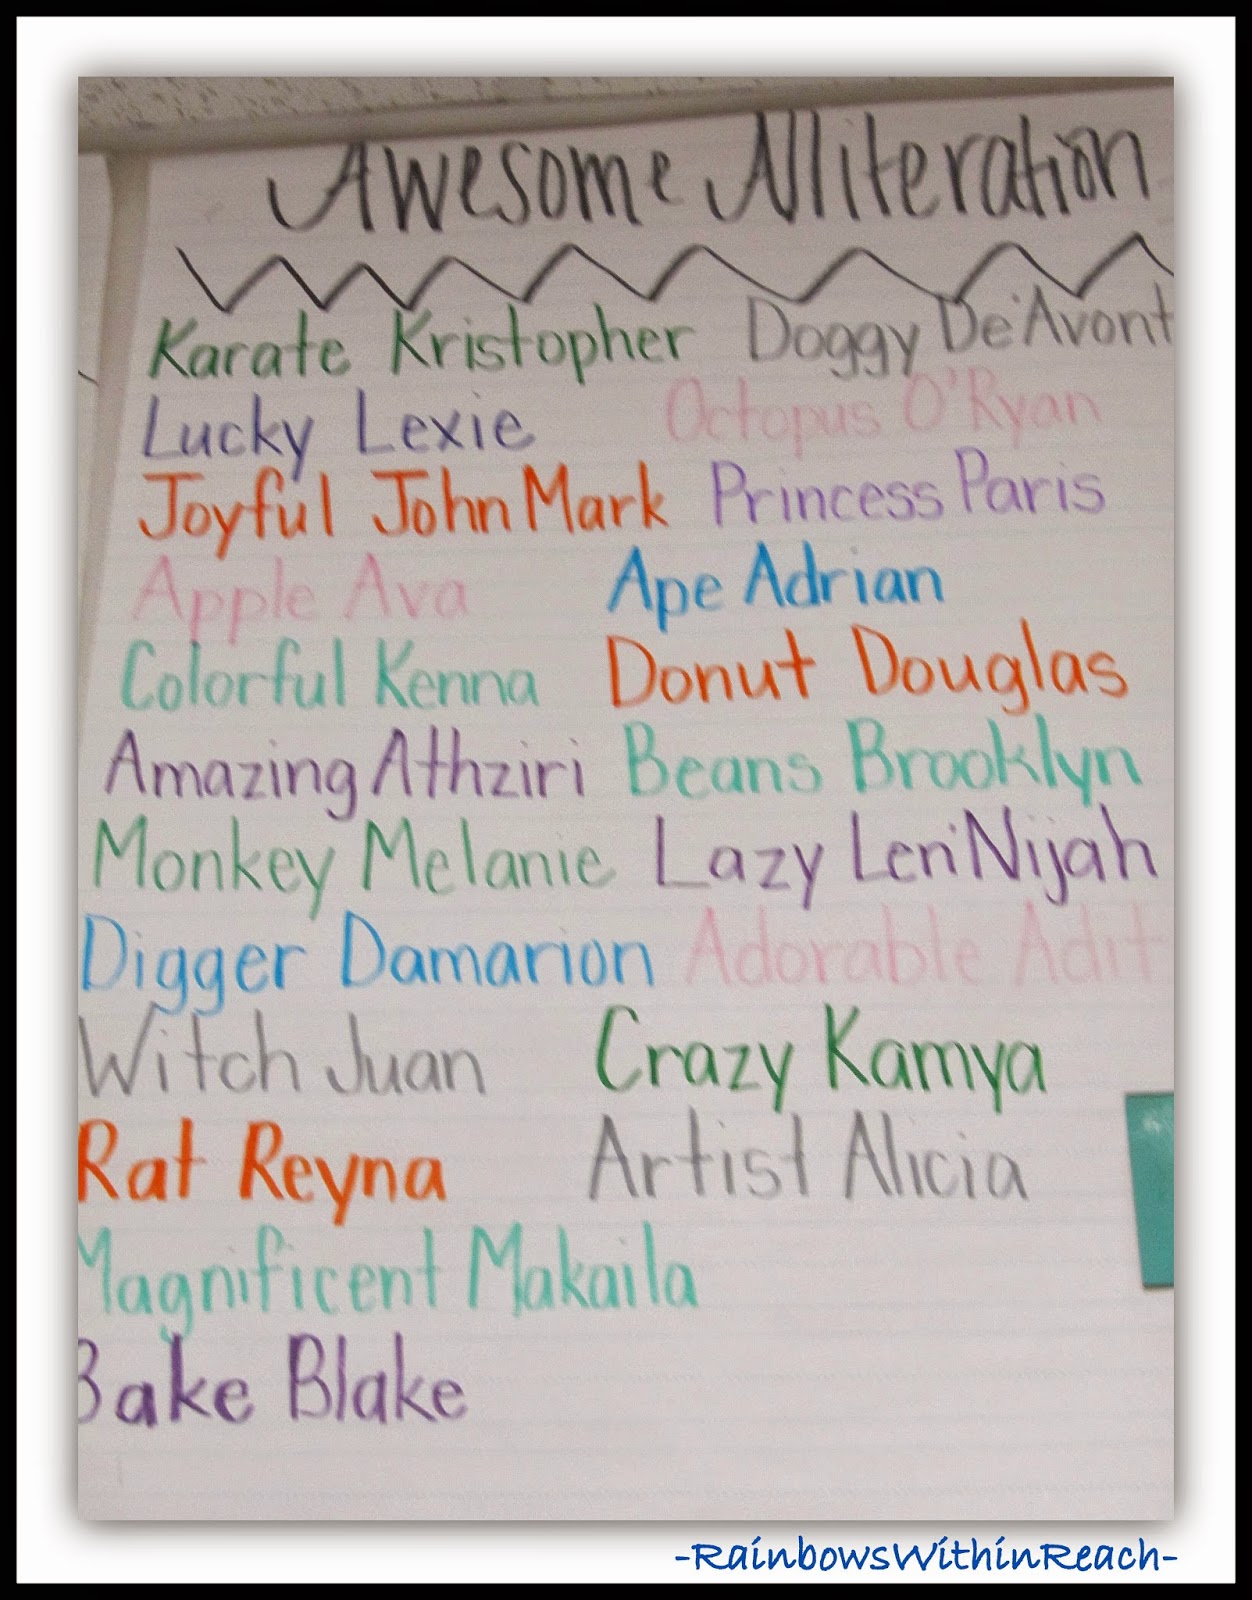 Awesome Alliteration
Karate Kristopher Doggy De'Avont
Lucky Lexie Octopus O'Ryan
Joyful John Mark Princess Paris
Apple Ava Ape Adrian
Colorful Kenna Donut Douglas
Amazing Athziri Beans Brooklyn
Monkey Melanie Lazy Leri'Nijah
Digger Damarion Adorable Adit
Witch Juan Crazy Kamya
Rat Reyna Artist Alicia
Magnificent Makaila
Bake Blake
-RainbowsWithinReach-